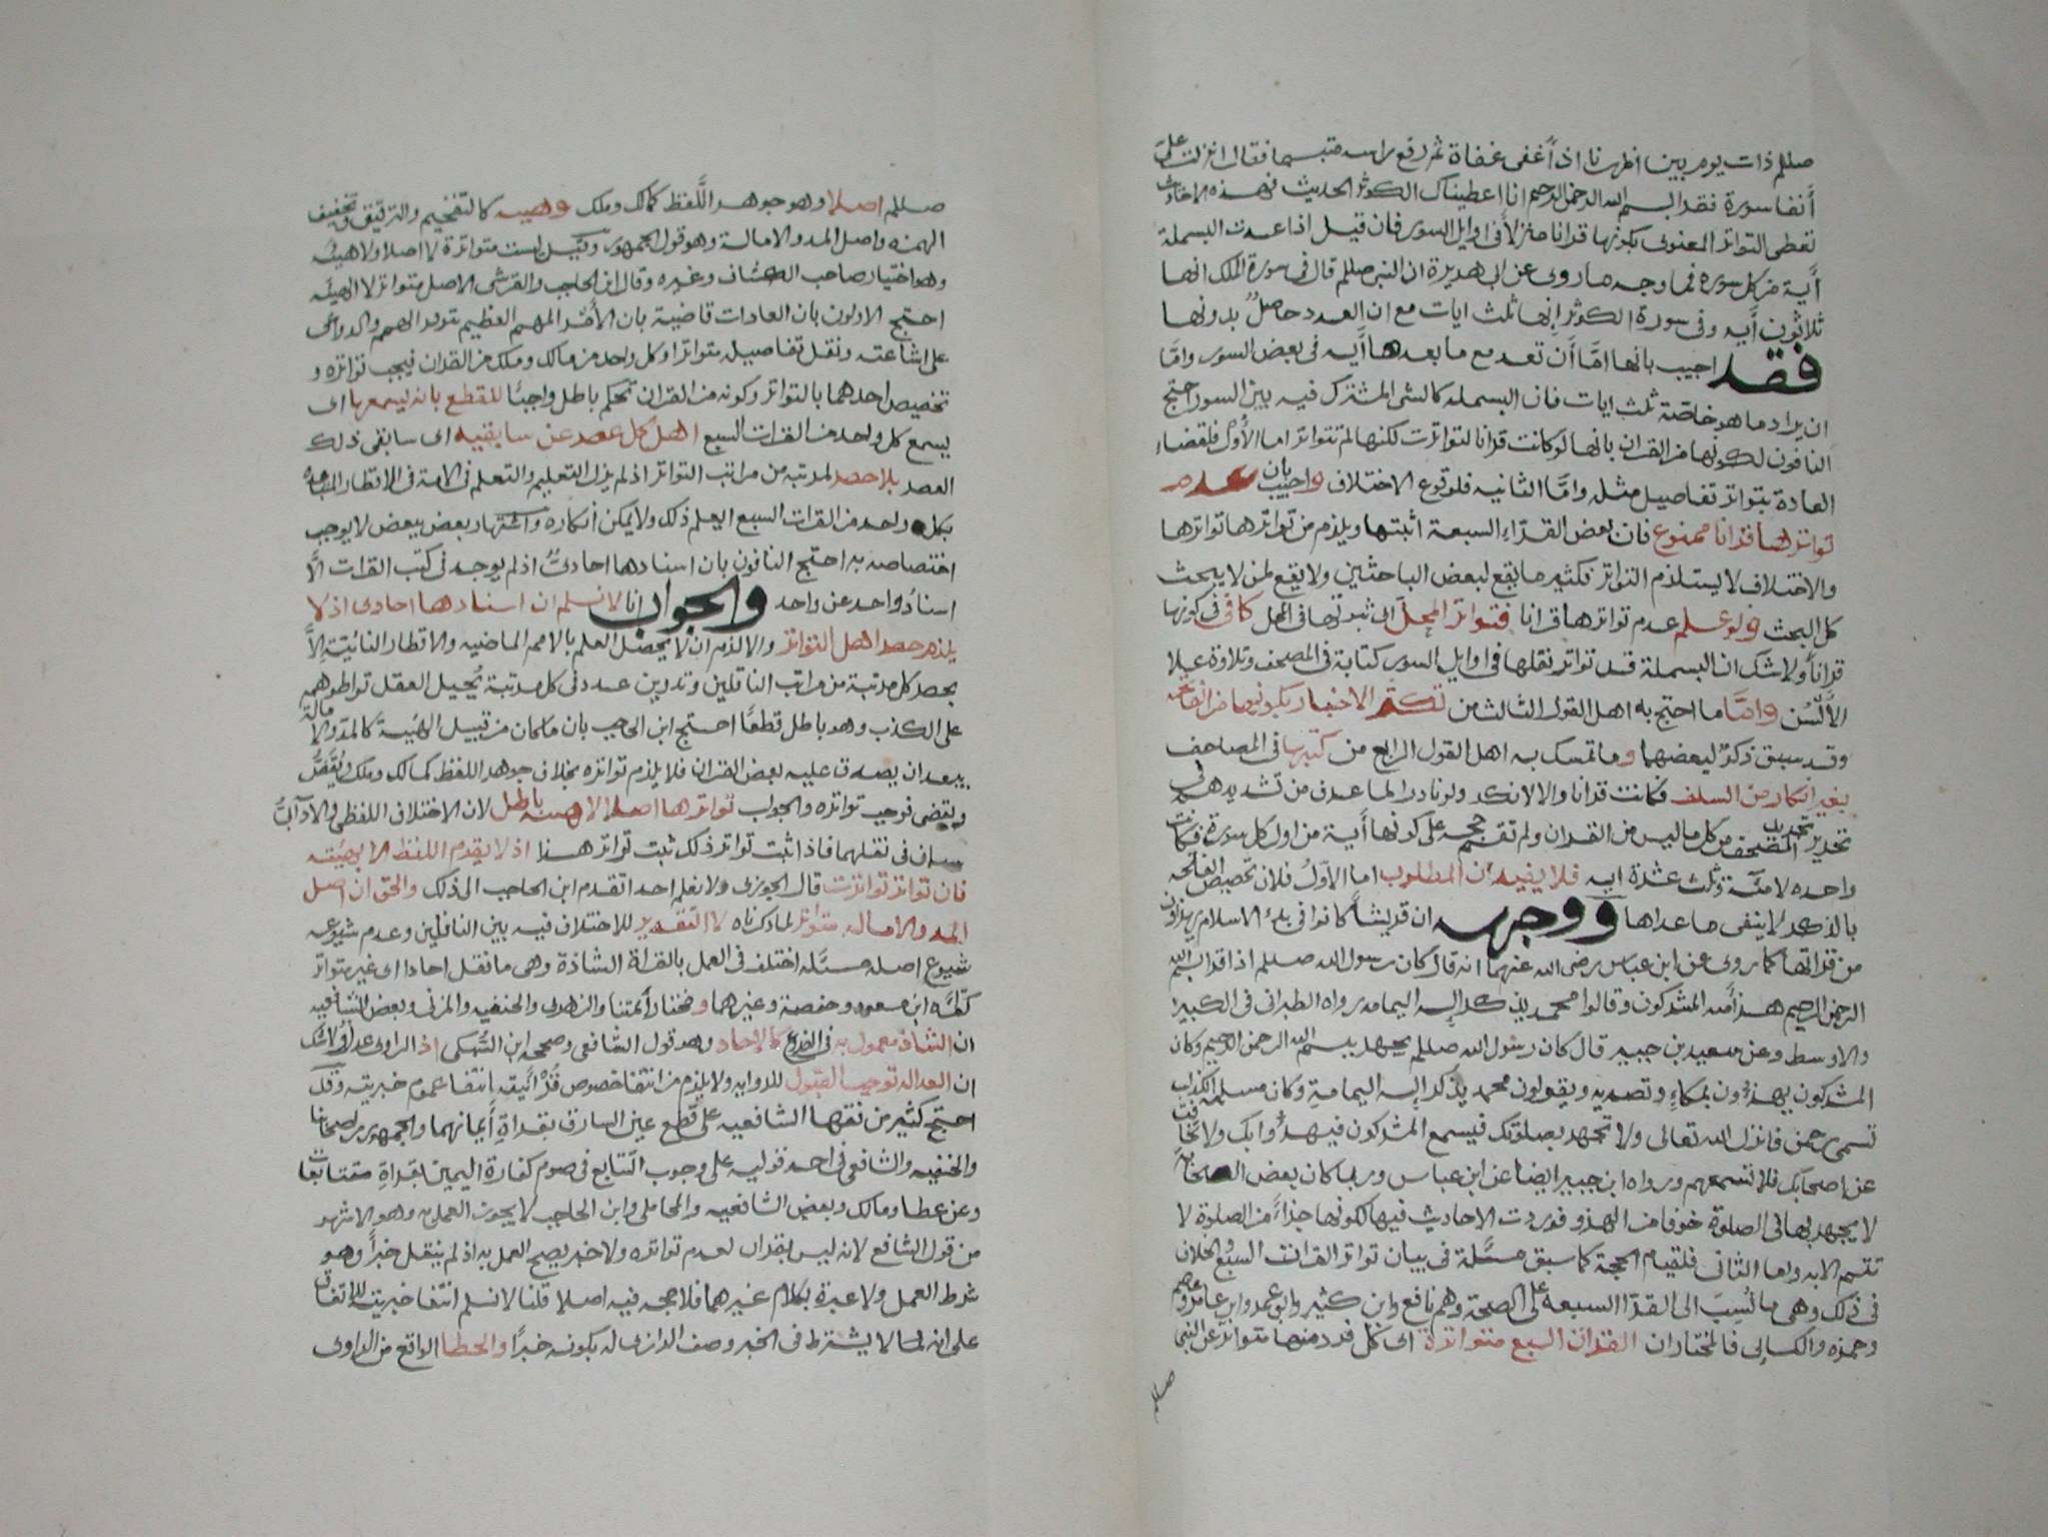 صللم ذات يوم بين اظهرنا اذ أغفى غفاة ثم رفع راسه متبسما فقال انزلت علىّ
أنفا سورة فقرا بسم الله الرحمن الرحيم انا اعطيناك الكوثر الحديث فهذه الاحاديث
تعطى التواتر المعنوى بكونها قرانا منزلاً فى اوايل السور فان قيل اذا عدت البسملة
أية من كل سورة فما وجه ما روى عن ابى هريرة ان النبى صللم قال فى سورة الملك انها
ثلاثون أيه وفى سورة الكوثر انها ثلث ايات مع ان العدد حاصل بدونها
فقد اجيب بانها امّا أن تعد مع ما بعدها أيه فى بعض السور وامّا
ان يراد ما هو خاصّة ثلث ايات فان البسمله كالشى المشترك فيه بين السور احتج
النافون لكونها من القران بانها لو كانت قرانا لتواترت لكنها لم تتواتر اما الأول فلقضاء
العادة بتواتر تفاصيل مثله وامّا الثانيه فلوقوع الاختلاف واجيب بان عدم
تواترها قرانا ممنوع فان بعض القرّاء السبعة اثبتها ويلزم من تواترها تواترها
والاختلاف لا يستلزم التواتر فكثير ما يقع لبعض الباحثين ولا يقع لمن لا يبحث
كل البحث ولو علم عدم تواترها قرانا فتواتر المحلّ اى ثبوتها فى المحل كافى فى كونها
قراناً ولا شك ان البسملة قد تواتر نقلها فى اوايل السور كتابة فى المصحف وتلاوة على
الألسُن وامّا ما احتج به اهل القول الثالث من تكثر الاخبار بكونها من الفاتحه
وقد سبق ذكرٌ لبعضها وما تمسك به اهل القول الرابع من كتبها فى المصاحف
بغير انكار من السلف فكانت قرانا والا لانكر ولو نادرا لما عرف من تشديدهم فى
تجريد المصحف من كل ما ليس من القران ولم تقم حجه على كونها أية من اول كل سورة فكانت
واحده لا مئة وثلث عشرة ايه فلا يفيد ان المطلوب اما الأولُ فلان تخصيص الفاتحه
بالذكر لا ينفى ما عداها ووجهه ان قريشًا كانوا فى بدء الاسلام يهزاون
من قراتها كما روى عن ابن عباس رضى الله عنهما انه قال كان رسول الله صللم اذا قرا بسم الله
الرحمن الرحيم هزأ منه المشركون وقالوا محمد يذكر إله اليمامه رواه الطبرانى فى الكبير
والاوسط وعن سعيد بن جبير قال كان رسول الله صللم يجهر ببسم الله الرحمن الرحيم وكان
المشركون يهزؤن بمكاءٍ وتصديه ويقولون محمد يذكر إله اليمامةِ وكان مسلمه الكذاب
تسمى رحمن فانزل الله تعالى ولا تجهر بصلوتك فيسمع المشركون فيهزؤا بك ولا تخافت
عن اصحابك فلا تسمعهم ورواه ابن جبير ايضا عن ابن عباس وربما كان بعض الصحابة
لا يجهر بها فى الصلوة خوفا من الهزو فوردت الاحاديث فيها لكونها جزاءً من الصلوة لا
تتم الا به واما الثانى فلقيام الحجة كما سبق مسَّلة فى بيان تواتر القرات السبع والخلاف
فى ذلك وهى ما نُسِبَ الى القرّا السبعه على الصحّة وهم نافع وابن كثير وابو عمرو وابن عامر وعاصم
وحمزه والكسائى فالمختار ان القران السبع متواترة اى كل فرد منها متواتر عن النبى
صللم
صللم اصلا وهو جوهر اللَّفظ كمالك وملك وهيئه كالتفخيم والترقيق وتخفيف
الهمزه واصل المد والامالة وهو قول الجمهور وقيل ليست متواترة لا اصلا ولا هيئه
وهو اختيار صاحب الكشاف وغيره وقال ابن الحاجب والقرشى الاصل متواتر لا الهيئه
احتج الاولون بان العادات قاضية بان الأمر المهم العظيم تتوفر الهمم والدواعى
على اشاعته ونقل تفاصيله متواترا وكل واحد من مالك وملك من القران فيجب تواتره و
تخصيص احدهما بالتواتر وكونه من القران تحكم باطل واجبا للقطع بانه ليسمعها اى
يسمع كل واحد من القرات السبع اهل كل عصر عن سابقيه اى سابقى ذلك
العصر بلا حصر لمرتبه من مراتب التواتر اذ لم يزل التعليم والتعلم فى الامة فى الاقطار المتباعده
بكل واحد من القرات السبع العلم ذلك ولا يمكن انكاره واشتهار بعض ببعض لا يوجب
اختصاصه به احتج النافون بان اسنادها احادىٌ اذ لم يوجد فى كتب القرات الّا
اسنادُ واحد عن واحد والجواب انا لا نسلم ان اسنادها احادى اذ لا
يلزم حصر اهل التواتر والا لزم ان لا يحصل العلم بالامم الماضيه والاقطار النائيّة الّا
بحصر كل مرتبة من مراتب الناقلين وتدوين عدد فى كل مرتبة تُحيل العقل تواطوهم
على الكذب وهو باطل قطعًا احتج ابن الحاجب بان ما كان من قبيل الهيئة كالمدّ والامالة
يبعد ان يصدق عليه بعض القران فلا يلزم تواتره بخلاف جوهر اللفظ كمالك وملك ويُقصُّ
ويقضى فوجب تواتره والجواب تواترها اصلا لا هيئه باطل لان الاختلاف اللفظى والادآئىُّ
سيان فى نقلهما فاذا ثبت تواتر ذلك ثبت تواتر هذا اذ لا يقوم اللفظ الا بهيئه
فان تواتر تواترت قال الجوزى ولا نعلم احدا تقدم ابن الحاجب الى ذلك والحق ان اصل
المد والاماله متواتر لما ذكرناه لا التقدير للاختلاف فيه بين الناقلين وعدم شيوعه
شيوع اصله مسَّله اختلف فى العمل بالقرأة الشاذة وهى ما نقل احادا اى غير متواتر
كقرأه ابن مسعود وحفصة وغيرهما ومختار أئمتنا والزهرى والحنفيه والمزنى وبعض الشافعيه
ان الشاذ معمول به فى الفروع كالاحاد وهو قول الشافعى وصححه ابن السُّبكى اذ الراوى عدل ولا شك
ان العداله توجب القبول للروايه ولا يلزم من انتفا خصوص قُرْأنيته انتفا عموم خبريته وقد
احتج كثير من فقها الشافعيه على قطع يمين السارق بقراة أيمانهما والجمهور من اصحابنا
والحنفيه والشافعى فى احد قوليه على وجوب التتابع فى صوم كفارة اليمين بقراةِ متتابعات
وعن عطا ومالك وبعض الشافعيه والمحاملى وابن الحاجب لا يجوز العمل به وهو الاشهر
من قول الشافع لانه ليس بقران لعدم تواتره ولا خبر يصح العمل به اذ لم ينقل خبراً وهو
شرط العمل ولا عبرة بكلام غيرهما فلا حجه فيه اصلا قلنا لا نسلم انتفا خبريته للاتفاق
على انه لما لا يشترط فى الخبر وصف الراوى له بكونه خبرًا والخطا الواقع من الراوى